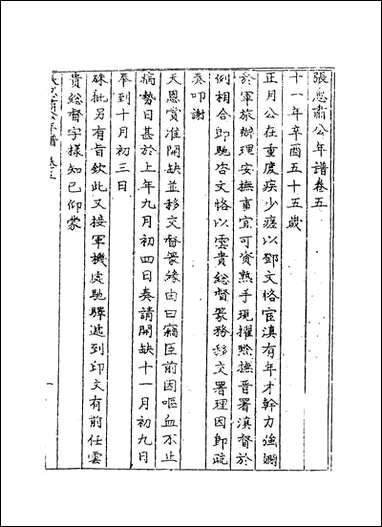 張惠肅公年譜卷五
十一年辛酉五十五歲
正月公在重慶疾少瘥以鄧文恪官滇有年才幹力強嫺
於軍旅辦理安撫事宜可資熟手現擢黔撫晉署滇督於
例相合即馳咨文恪以雲貴總督篆務移交署理因即疏
奏叩謝
天恩賞准開缺並移交督篆緣由曰竊臣前因嘔血不止
病勢日甚於上年九月初四日奏請開缺十一月初九日
奉到十月初三日
硃批另有旨欽此又接軍機處馳驛遞到印文有前任雲
貴總督字樣知已仰蒙
一